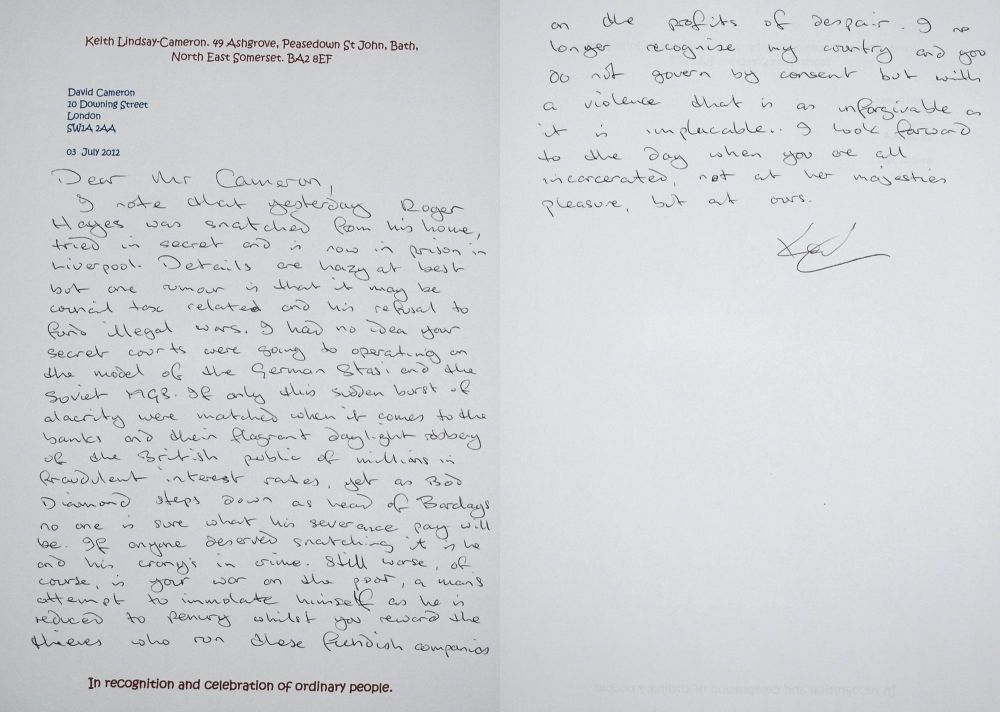 Keith Lindsay-Cameron. 49 Ashgrove, Peasedown St John, Bath,
North East Somerset. BA2 8EF
David Cameron
10 Downing Street
London
SW1A 2AA
03 July 2012
Dear Mr Cameron,
I note that yesterday Roger
Hayes was snatched from his home,
tried in secret and is now in prison in
Liverpool. Details are hazy at best
but one rumour is that it may be
council tax related and his refusal to
fund illegal wars. I had no idea your
secret courts were going to operating on
the model of the German Stasi and the
Soviet MGB. If only this sudden burst of
alacrity were matched when it comes to the
banks and their flagrant daylight robbery
of the British public of millions in
fraudulent interest rates, yet as Bob
Diamond steps down as head of Barclays
no one is sure what his severance pay will
be. If anyone deserved snatching it is he
and his crony's in crime. Still worse, of
course, is your war on the poor, a mans
attempt to immolate himself as he is
reduced to penury whilst you reward the
thieves who run these fiendish companies
In recognition and celebration of ordinary people.
on the profits of despair. I no
longer recognise my country and you
do not govern by consent but with
a violence that is as unforgivable as
it is implacable.. I look forward
to the day when you are all
incarcerated, not at her majesties
pleasure, but at ours.